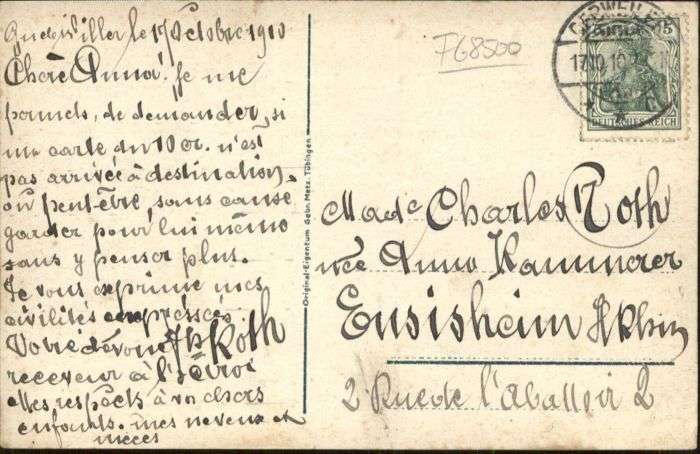 Guebwiller le 17 Octobre 1910
Chère Anna! Je me
permets, de demander, si
ma carte du 10 cr. n'est
pas arrivée à destination
ou peut-être, sans cause
garder pour lui même
sans y penser plus.
Je vous exprime mes
civilités empressées.
Votre dévoué Jh Roth
receveur à l'octroi
Mes respects à vos chers
enfants. mes neveux et
nieces
Original-Eigentum Gebr. Metz, Tübingen
F68500
GEBWEILER
17.10.10
5
DEUTSCHES REICH
Made Charles Roth
née Anna Kammerer
Ensisheim H Rhin
2 Rue de l'Abattoir 2